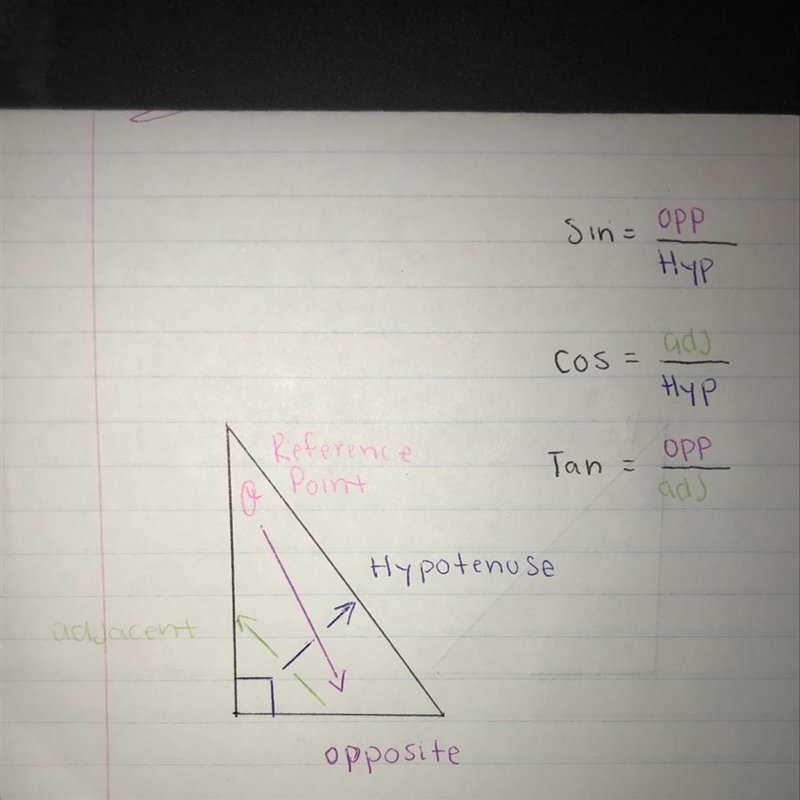 Sin = OPP
Hyp
Cos = adj
Hyp
Tan = OPP
adj
Reference
Point
θ
Hypotenuse
adjacent
opposite